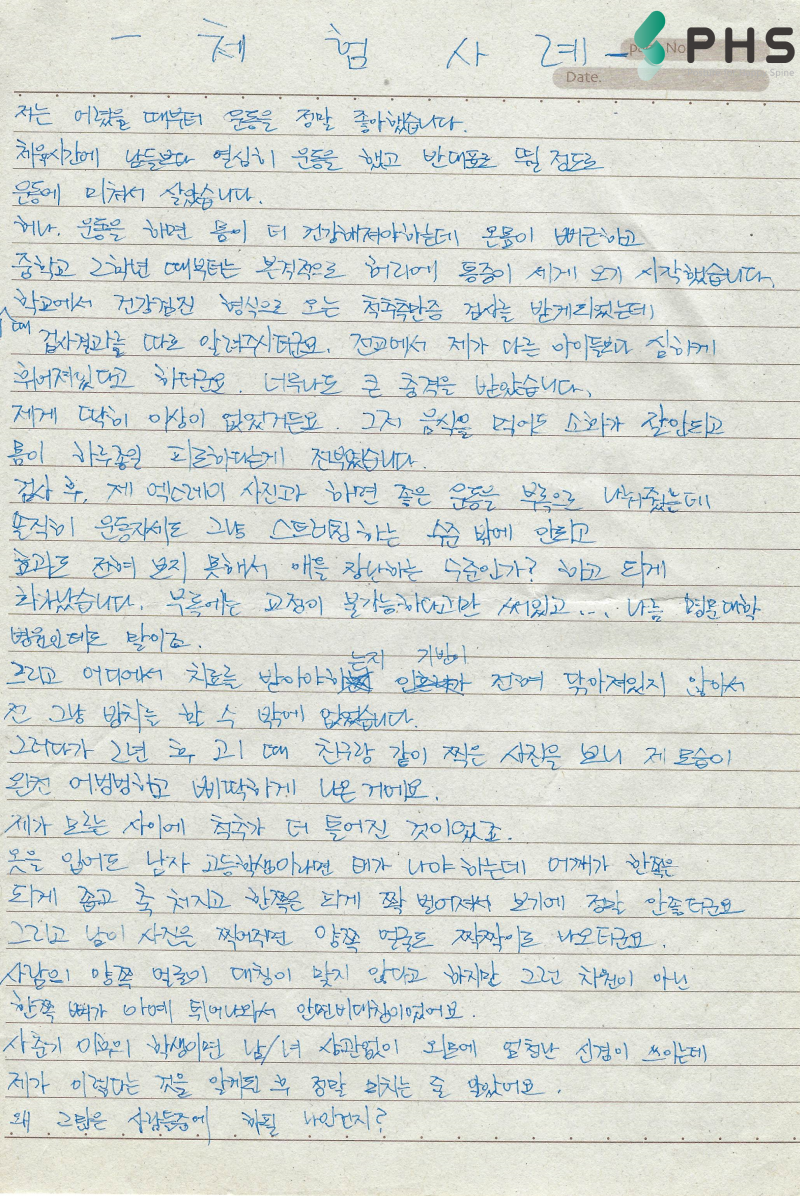 - 체 험 사 례 -
PHS
Spine
No
Date.
저는 어렸을 때부터 운동을 정말 좋아했습니다.
체육시간에 남들보다 열심히 운동을 했고 반대표로 뛸 정도로
운동에 미쳐서 살았습니다.
허나, 운동을 하면 몸이 더 건강해져야하는데 온몸이 뻐근하고
중학교 2학년 때부터는 본격적으로 허리에 통증이 세게 오기 시작했습니다.
학교에서 건강검진 형식으로 오는 척추측만증 검사를 받게되었는데
그때 검사결과를 따로 알려주시더군요. 전교에서 제가 다른 아이들보다 심하게
휘어져있다고 하더군요. 너무나도 큰 충격을 받았습니다.
제게 딱히 이상이 없었거든요. 그저 음식을 먹어도 소화가 잘안되고
몸이 하루종일 피로하다는게 전부였습니다.
검사 후, 제 엑스레이 사진과 하면 좋은 운동을 부록으로 나눠줬는데
솔직히 운동자세도 그냥 스트레칭하는 수준 밖에 안되고
효과도 전혀 보지 못해서 애들 장난하는 수준인가? 하고 되게
화가났습니다. 부록에는 교정이 불가능하다고만 써있고... 나름 명문대학
병원인데도 말이죠.
그리고 어디에서 치료를 받아야하는지 기반이 전혀 닦아져있지 않아서
전 그냥 방치는 할 수 밖에 없었습니다.
그러다가 2년 후 고1 때 친구랑 같이 찍은 사진을 보니 제 모습이
완전 어벙벙하고 삐딱하게 나온거에요.
제가 모르는 사이에 척추가 더 틀어진 것이었죠.
옷을 입어도 남자 고등학생이라면 태가 나야하는데 어깨가 한쪽은
되게 좁고 축 처지고 한쪽은 되게 쫙 벌어져서 보기에 정말 안좋더군요
그리고 남이 사진을 찍어주면 양쪽 얼굴도 짝짝이로 나오더군요.
사람의 양쪽 얼굴이 대칭이 맞지 않다고 하지만 그런 차원이 아닌
한쪽 뼈가 아예 튀어나와서 안면비대칭이었어요.
사춘기 이후의 학생이면 남/녀 상관없이 외모에 엄청난 신경이 쓰이는데
제가 이렇다는 것을 알게된 후 정말 미치는 줄 알았어요.
왜 그많은 사람들중에 하필 나인건지?